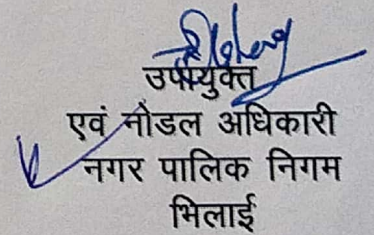 उपायुक्त
एवं नोडल अधिकारी
नगर पालिक निगम
भिलाई